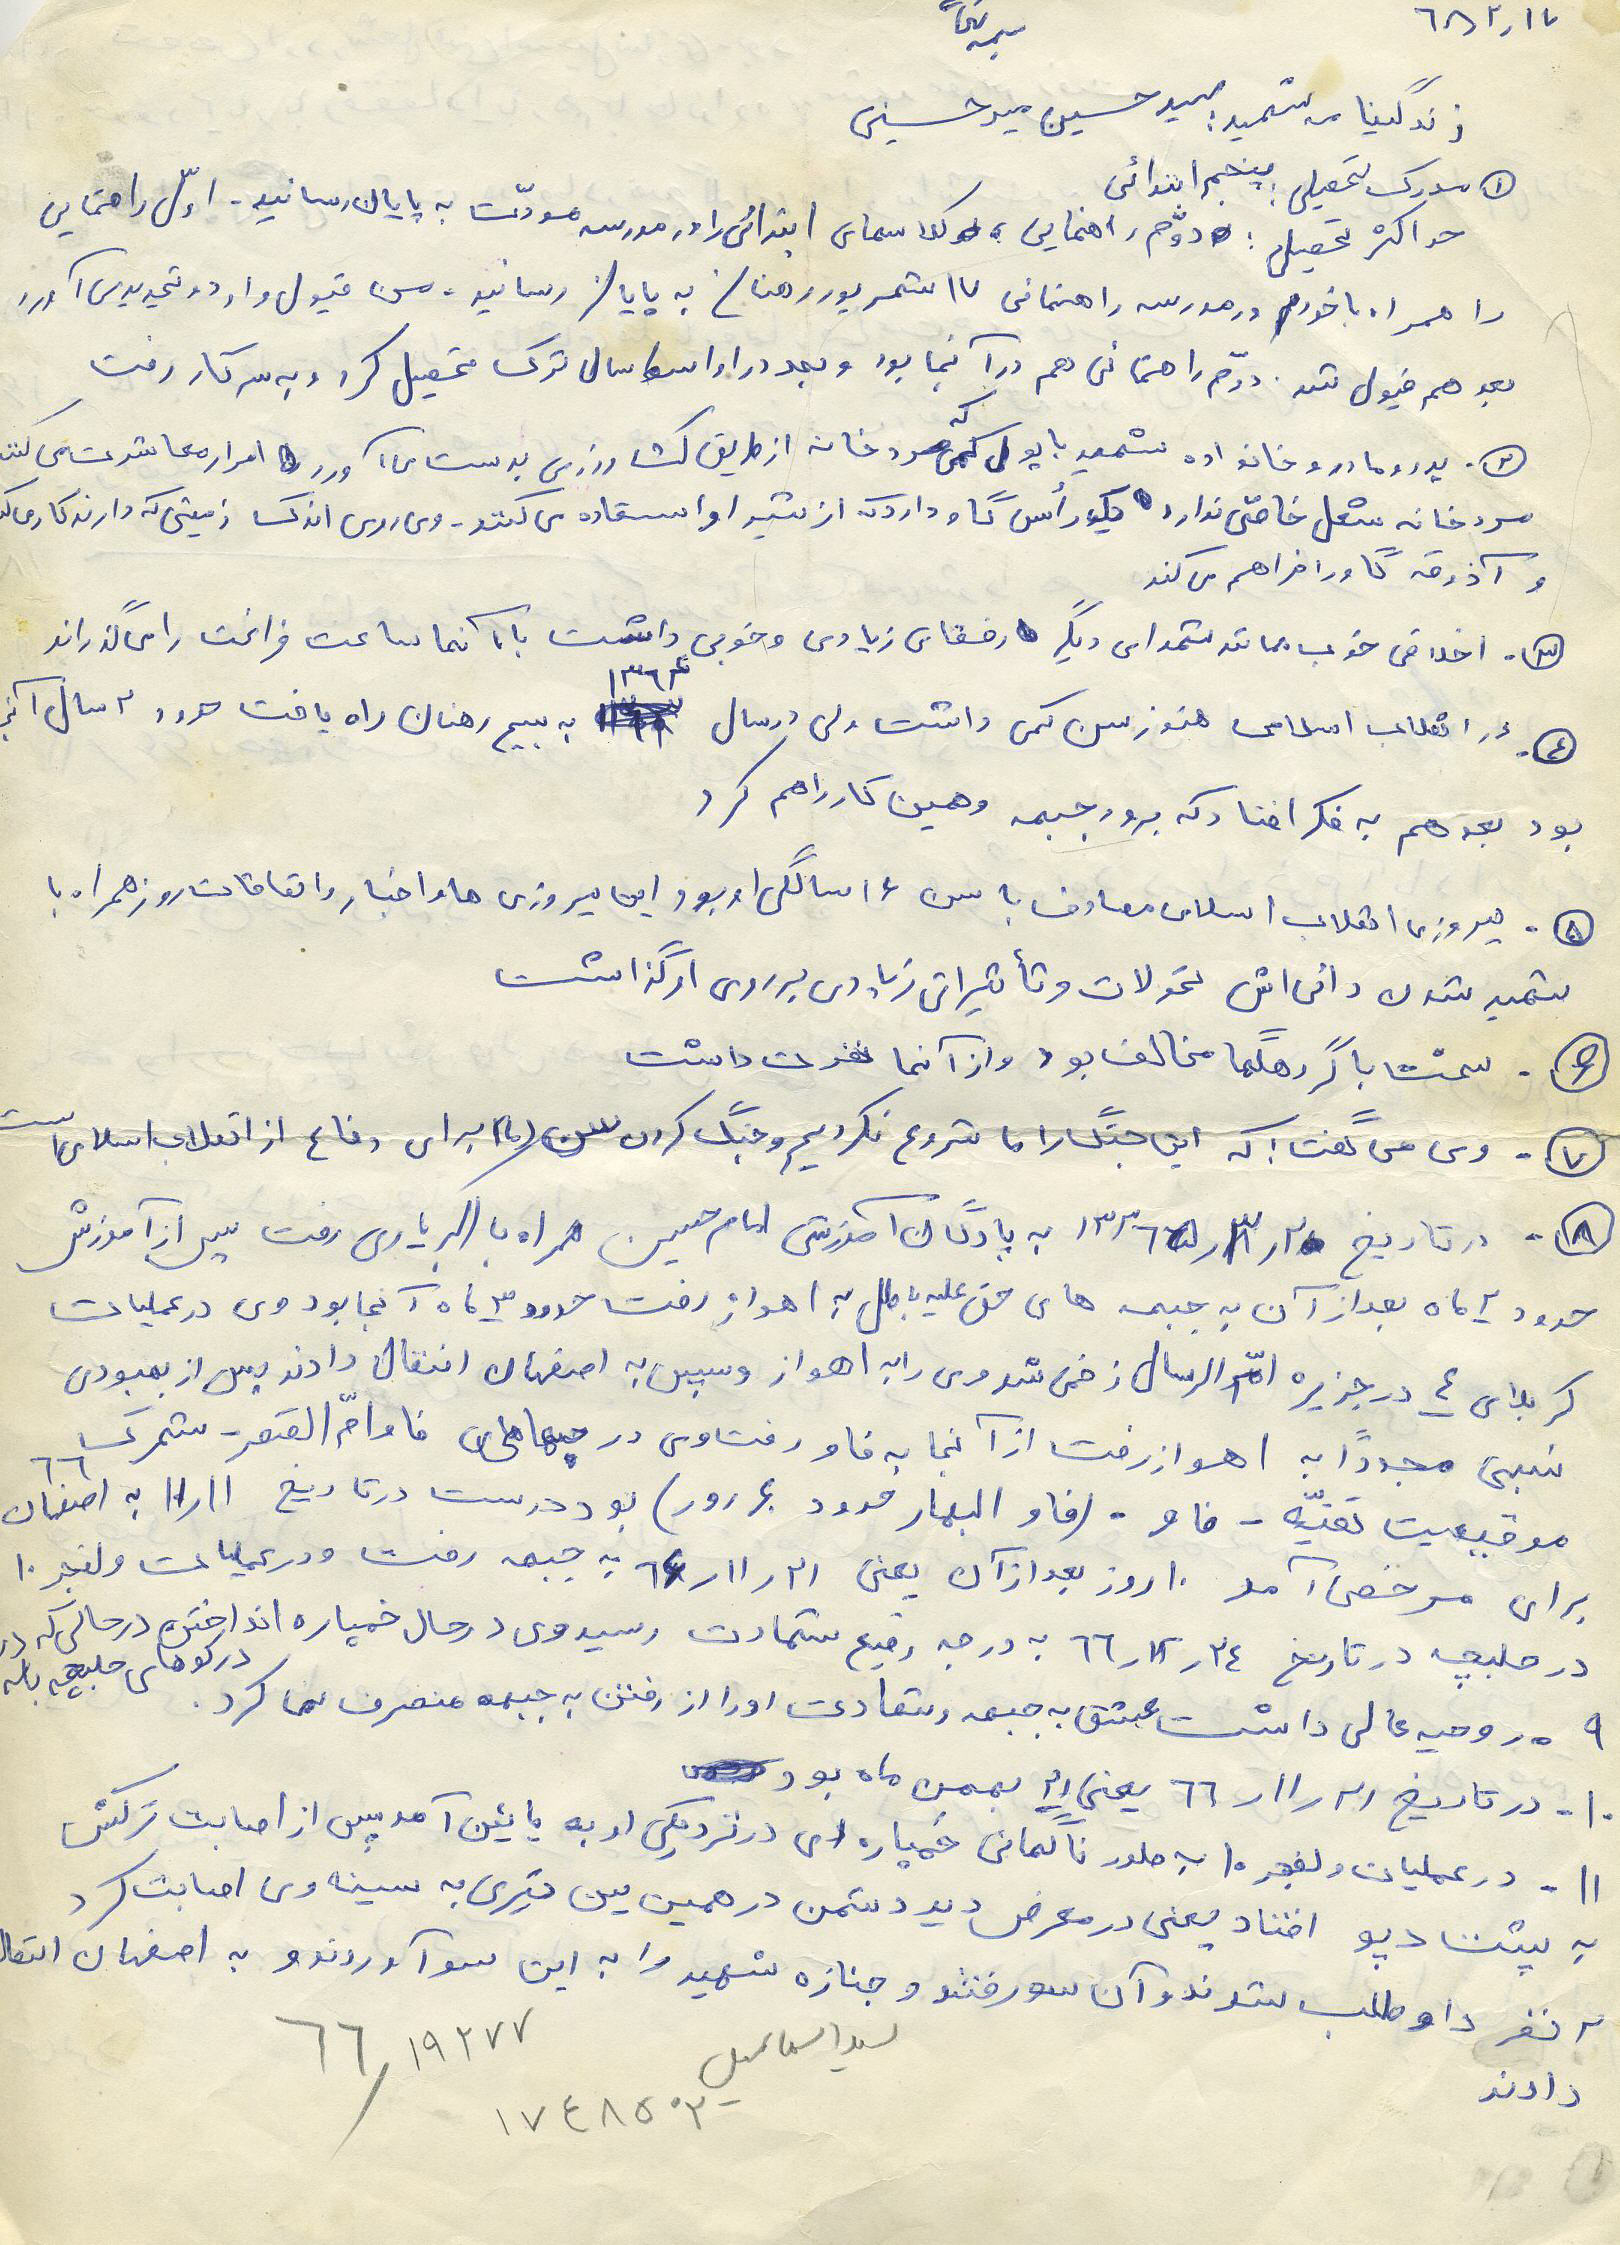 ۶۸/۲/۱۷
بسمه تعالی
زندگینامه شهید: سید حسین میرحسینی
① مدرک تحصیلی: پنجم ابتدائی
حداکثر تحصیل: دوّم راهنمایی، کلاسهای ابتدائی را در مدرسه مودّت به پایان رسانید - اوّل راهنمایی
را همراه با خودم در مدرسه راهنمائی ۱۷ شهریور رهنان به پایان رسانید - من قبول و او دو تجدیدی آورد
بعد هم قبول شد. دوّم راهنمائی هم در آنجا بود و بعد در اواسط سال ترک تحصیل کرد و به سر کار رفت
② - پدر و مادر و خانواده شهید با پول کمی که مرد خانه از طریق کشاورزی بدست می آورد امرار معاشرت می کنند
مرد خانه شغل خاصّی ندارد یک رأس گاو دارد که از شیر او استفاده می کنند - وی روی اندک زمینی که دارند کار می کند
و آذوقه گاو را فراهم می کند
③ - اخلاقی خوب مانند شهدای دیگر رفقای زیادی و خوبی داشت با آنها ساعت فراغت را می گذراند
④ - در انقلاب اسلامی هنوز سن کمی داشت ولی در سال ۱۳۶۴ به بسیج رهنان راه یافت حدود ۲ سال آنجا
بود بعد هم به فکر افتاد که برود جبهه و همین کار را هم کرد
⑤ - پیروزی انقلاب اسلامی مصادف با سن ۶ سالگی او بود این پیروزی ها و اخبار و اتفاقات روز همراه با
شهید شدن دائی اش تحولات و تأثیراتی زیادی بر روی او گذاشت
⑥ - سخت با گروهکها مخالف بود و از آنها نفرت داشت
⑦ - وی می گفت: که این جنگ را ما شروع نکردیم و جنگ کردن (ما) برای دفاع از انقلاب اسلامی است
⑧ - در تاریخ به پادگان آموزشی امام حسین همراه با اکبر یاری رفت پس از آموزش
حدود ۲ ماه بعد از آن به جبهه های حق علیه باطل به اهواز رفت حدود ۳ ماه آنجا بود وی در عملیات
کربلای ۴ در جزیره امّ الرسال زخمی شد وی را به اهواز و سپس به اصفهان انتقال دادند پس از بهبودی
نسبی مجدداً به اهواز رفت از آنجا به فاو رفت وی در فاو امّ القصر - شهرک
موقعیت تقیّه - فاو - (فاو البهار حدود ۶ روز) بود درست در تاریخ ۱۱/۱۱/۶۶ به اصفهان
برای مرخصی آمد ۱۰ روز بعد از آن یعنی ۲۱/۱۱/۶۶ به جبهه رفت و در عملیات ولفجر ۱۰
در حلبچه در تاریخ ۲۴/۱۲/۶۶ به درجه رفیع شهادت رسید وی در حال خمپاره انداختن در حالی که در
در کوهای حلبچه
۹ - روحیه عالی داشت عشق به جبهه و شهادت او را از رفتن به جبهه منصرف نما کرد.
۱۰ - در تاریخ ۲۱/۱۱/۶۶ یعنی ۲۱ بهمن ماه بود
۱۱ - در عملیات ولفجر ۱۰ به طور ناگهانی خمپاره ای در نزدیکی او به پایین آمد پس از اصابت ترکش
به پشت دپو افتاد یعنی در معرض دید دشمن در همین بین تیری به سینه وی اصابت کرد
۲ نفر داوطلب شدند و آن سو رفتند و جنازه شهید را به این سو آوردند و به اصفهان انتقال
دادند
سید اسماعیل
۶۶/۱۹۲۷۷
۱۷۴۸۵۰۲